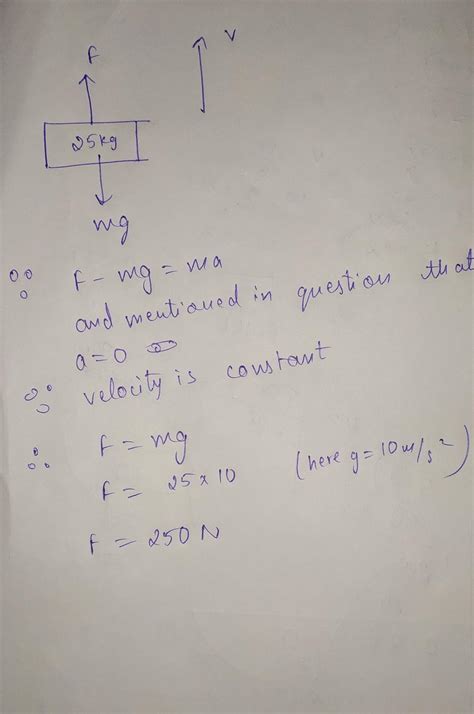 F
V
25kg
mg
∵ F - mg = ma
and mentioned in question that
a = 0
∵ velocity is constant
∴ F = mg
F = 25 x 10 (here g = 10 m/s²)
F = 250 N